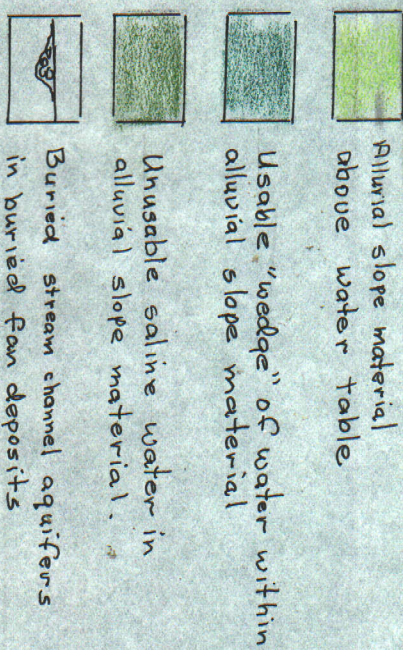 Alluvial slope material
above water table
Usable "wedge" of water within
alluvial slope material
Unusable saline water in
alluvial slope material.
Buried stream channel aquifers
in buried fan deposits